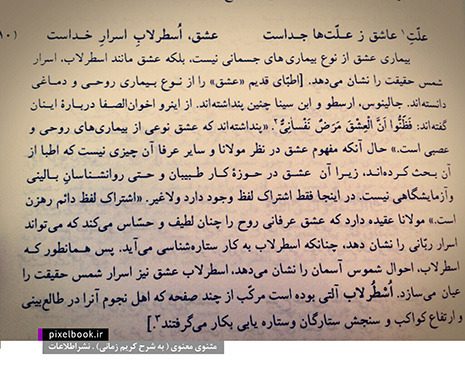 ۱۰) علّتِ¹ عاشق ز علّت‌ها جداست عشق، اُسطرلابِ اسرارِ خداست
بیماری عشق از نوع بیماری های جسمانی نیست، بلکه عشق مانند اسطرلاب، اسرار
شمس حقیقت را نشان می‌دهد. [اطبّای قدیم «عشق» را از نوع بیماری روحی و دماغی
دانسته‌اند. جالینوس، ارسطو و ابن سینا چنین پنداشته‌اند. از اینرو اخوان‌الصفا دربارهٔ اینان
گفته‌اند: فَظَنُّوا اَنَّ الْعِشْقَ مَرَضٌ نَفْسانِیٌّ². «پنداشته‌اند که عشق نوعی از بیماری‌های روحی و
عصبی است.» حال آنکه مفهوم عشق در نظر مولانا و سایر عرفا آن چیزی نیست که اطبا از
آن بحث کرده‌اند، زیرا آن عشق در حوزهٔ کار طبیبان و حتی روانشناسان بالینی
وآزمایشگاهی نیست. در اینجا فقط اشتراک لفظ وجود دارد ولاغیر. «اشتراک لفظ دائم رهزن
است.» مولانا عقیده دارد که عشق عرفانی روح را چنان لطیف و حسّاس می‌کند که می‌تواند
اسرار ربّانی را نشان دهد، چنانکه اسطرلاب به کار ستاره‌شناسی می‌آید. پس همانطور که
اسطرلاب، احوال شموس آسمان را نشان می‌دهد، اسطرلاب عشق نیز اسرار شمس حقیقت را
عیان می‌سازد. اُسْطُرلاب آلتی بوده است مرکّب از چند صفحه که اهل نجوم آنرا در طالع‌بینی
و ارتفاع کواکب و سنجش ستارگان وستاره یابی بکار می‌گرفتند³.]
pixelbook.ir
مثنوی معنوی ( به شرح کریم زمانی) . نشراطلاعات